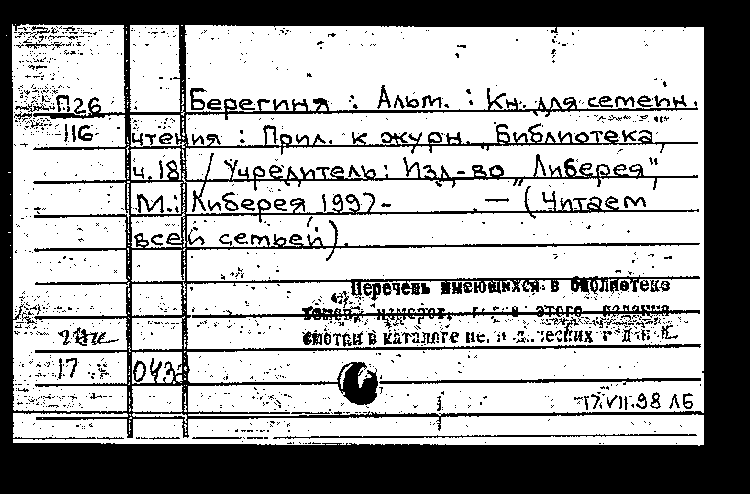 П26 Берегиня : Альм. : Кн. для семейн.
116 чтения : Прил. к журн. „Библиотека",
ч. 18 / Учредитель: Изд-во „Либерея"
М.: Либерея, 1997- . — (Читаем
всей семьей).
Перечень имеющихся в библиотеке
томов, номеров, этого издания
смотри в каталоге
17 043
17.VII.98 ЛБ